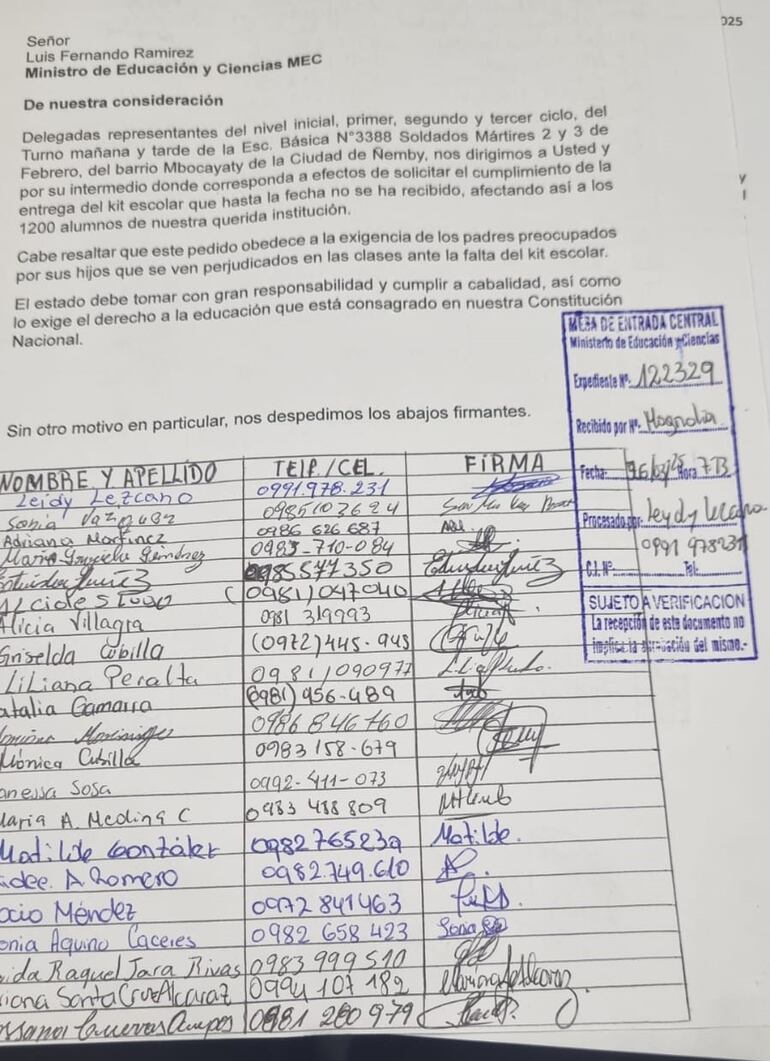 025
Señor
Luis Fernando Ramirez
Ministro de Educación y Ciencias MEC
De nuestra consideración
Delegadas representantes del nivel inicial, primer, segundo y tercer ciclo, del
Turno mañana y tarde de la Esc. Básica N°3388 Soldados Mártires 2 y 3 de
Febrero, del barrio Mbocayaty de la Ciudad de Ñemby, nos dirigimos a Usted y
por su intermedio donde corresponda a efectos de solicitar el cumplimiento de la
entrega del kit escolar que hasta la fecha no se ha recibido, afectando así a los
1200 alumnos de nuestra querida institución.
Cabe resaltar que este pedido obedece a la exigencia de los padres preocupados
por sus hijos que se ven perjudicados en las clases ante la falta del kit escolar.
El estado debe tomar con gran responsabilidad y cumplir a cabalidad, así como
lo exige el derecho a la educación que está consagrado en nuestra Constitución
Nacional.
MESA DE ENTRADA CENTRAL
Ministerio de Educación y Ciencias
Expediente Nº: 122329
Recibido por Nº: Magnolia
Fecha: Hora
Procesado por: Leydy Lezcano
C.I. Nº Tel:
SUJETO A VERIFICACION
La recepción de este documento no
implica la del mismo.-
Sin otro motivo en particular, nos despedimos los abajos firmantes.
NOMBRE Y APELLIDO TELF./CEL. FIRMA
Leidy Lezcano 0991.978.231
Sonia Vazquez 0985103624
Adriana Martinez 0986 626 687
Maria Graciela Gimenez 0983-710-084
0985577350
Alcides (0981)047040
Alicia Villagra 0981 319993
Griselda Cubilla (0972)445-943
Liliana Peralta 0981/090977
atalia Gamarra (0981) 956-489
0986846760
Mónica Cubilla 0983 158-679
anessa Sosa 0992-411-073
Maria A. Medina C 0983 488 809
Matilde González 0982765239 Matilde.
idee. A. Romero 0982.749.610
ocio Méndez 0972 841463
onia Aquino Caceres 0982 658 423 Sonia
ida Raquel Jara Rivas 0983 999 510
riana Santa Cruz Alcaraz 0994 107 182
Cuevas Campos 0981 280 979